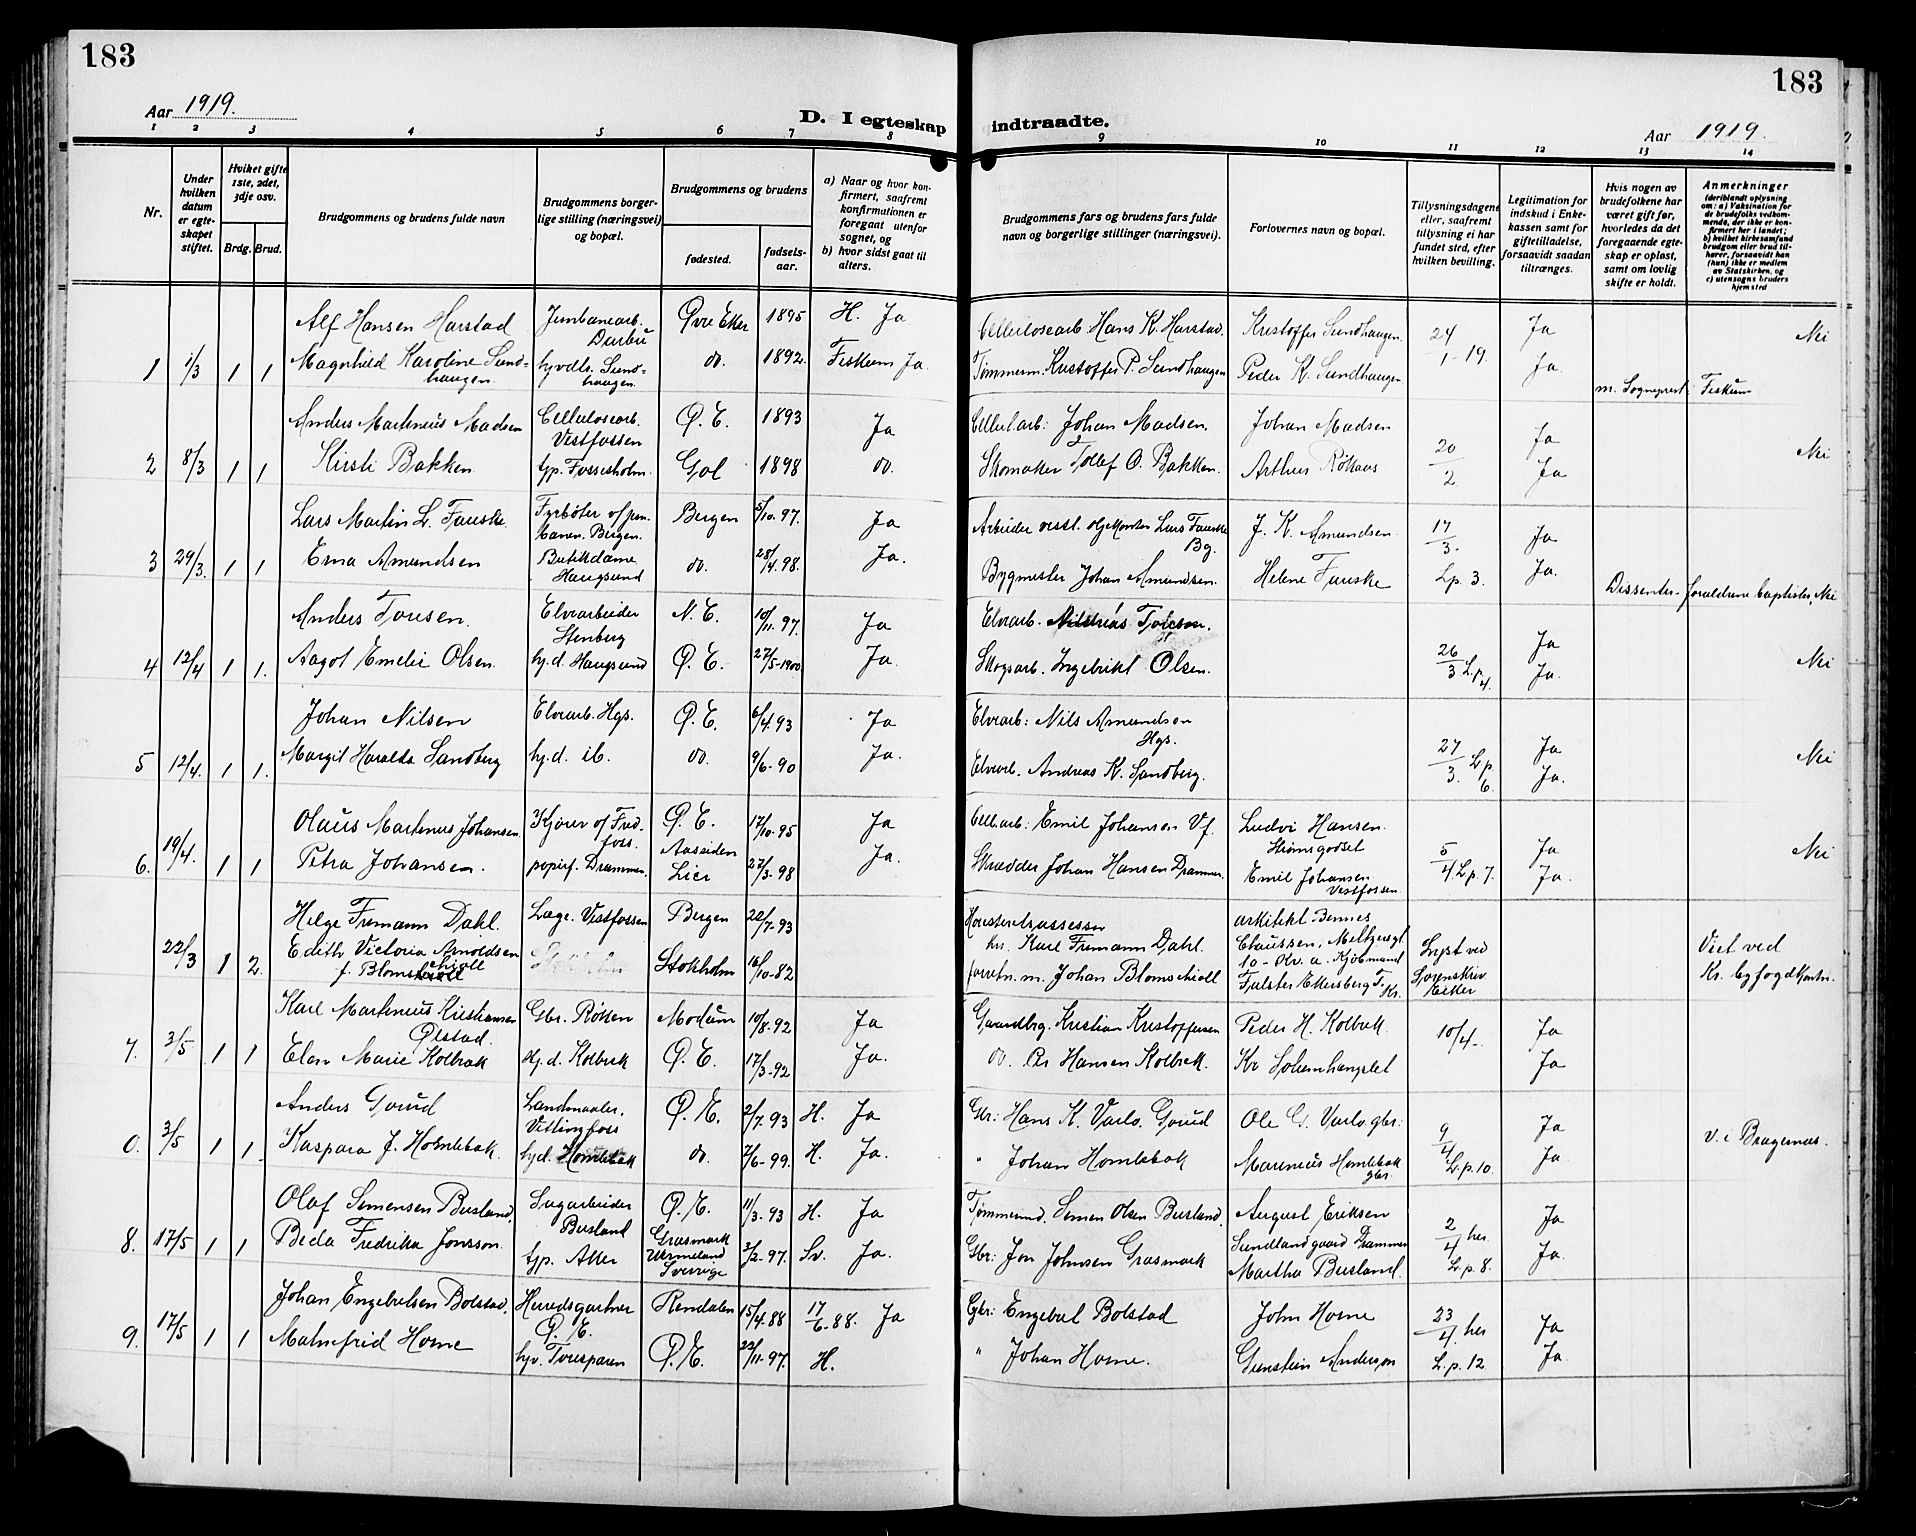 183
183
Aar 1919.
D. I egteskap indtraadte.
Aar 1919.
1 2 3 4 5 6 7 8 9 10 11 12 13 14
Nr.
Under hvilken datum er egteskapet stiftet.
Hvilket gifte 1ste, 2det, 3dje osv.
Brdg. Brud.
Brudgommens og brudens fulde navn
Brudgommens borgerlige stilling (næringsvei) og bopæl.
Brudgommens og brudens
fødested.
fødselsaar.
a) Naar og hvor konfirmert, saafremt konfirmationen er foregaat utenfor sognet, og
b) hvor sidst gaat til alters.
Brudgommens fars og brudens fars fulde navn og borgerlige stillinger (næringsvei).
Forlovernes navn og bopæl.
Tillysningsdagene eller, saafremt tillysning ei har fundet sted, efter hvilken bevilling.
Legitimation for indskud i Enkekassen samt for giftetilladelse, forsaavidt saadan tiltrænges.
Hvis nogen av brudefolkene har været gift før, hvorledes da det foregaaende egteskap er opløst, samt om lovlig skifte er holdt.
Anmerkninger (deriblandt oplysning om: a) Vaksination for de brudefolks vedkommende, der ikke er konfirmert her i landet; b) hvilket kirkesamfund brudgom eller brud tilhører, forsaavidt han (hun) ikke er medlem av Statskirken, og c) utensogns bruders hjemsted
Alf Hansen Harstad Jernbanearb. Darbu Øvre Eker 1895 H. Ja Cellulosearb. Hans K. Harstad. Kristoffer Sundhaugen. 24/1-19. Ja Nei
1 1/3 1 1 Magnhild Karoline Sundhaugen. hyvdtr. Sundhaugen. do. 1892. Fiskum Ja. Tømmerm. Kristoffer P. Sundhaugen Peder K. Sundhaugen. Ja.
m. Sogneprest i Fiskum
Anders Martinius Madsen Cellulosearb. Vestfossen Ø. E. 1893 Ja Cellul.arb: Johan Madsen. Johan Madsen 20/2. Ja Nei
2 8/3 1 1 Kirsti Bakken. tjp. Fossesholm. Gol 1898 do. Skomaker Tollef O. Bakken. Arthur Ja
Lars Martin L. Fauske. Fyrbøter Bergen. Bergen 5/10. 97. Ja Arbeider Lars Fauske Bg. J. K. Amundsen. 17/3. Ja
3 29/3. 1 1 Erna Amundsen Butikdame Haugsund do. 28/4. 98. Ja. Bygmester Johan Amundsen. Helene Fauske Lp. 3. Ja.
Dissenter - foreldrene baptister. Nei
Anders Tovsen. Elvearbeider Stenberg N. E. 10/11. 97. Ja Elvearb. 26/3 L.p. 4. Ja Nei
4 12/4 1 1. Aagot Emelie Olsen. hj.d. Haugsund Ø. E. 27/5-1900 Ja. Skogsarb. Ingebrikt Olsen. Ja.
Johan Nilsen Elvearb. Hgs. Ø. E. 6/4. 93 Ja Elvearb: Nils Amundsen Hgs. 27/3. L.p. 6. Ja Nei
5 12/4. 1 1. Margit Haralda Sandberg hj.d. ib. do. 9/6-90 Ja. Elvearb. Andreas K. Sandberg. Ja.
Olaus Martinus Johansen. Kjører Fredfoss. Ø. E. 17/10-95 Ja Cell.arb: Emil Johansen Vf. Ludvi Hansen. Strømsgodset 5/4. L.p. 7. Ja Nei
6. 19/4. 1 1 Petra Johansen. papirf. Drammen. Aaseiden Lier 27/3-98 Ja. Skrædder Johan Hansen Drammen. Emil Johansen Vestfossen. Ja.
Helge Frimann Dahl. Læge. Vestfossen Bergen 22/7-93 Høiesteretsassessor hr. Karl Frimann Dahl. arkitekt Bennes Claussen, Meltzersgt. 10 - Kr. a. Kjøbmand Lyst ved Sorenskriv. Eiker Viet ved Kr. byfogdkontr.
22/3 1 2. Edith Victoria Arnoldsen f. Blomschiøll Stokholm 16/10-82 forretn. m. Johan Blomschiøll Falster Ekersberg F. Kr.
Karl Martinius Kristiansen Ølstad. Gbr. Røkken Modum 10/8-92 Ja Gaardbrg. Kristian Kristoffersen Peder H. Kolbrek. 10/4-. Ja
7. 3/5 1 1 Elen Marie Kolbræk hj.d. Kolbrek Ø. E. 17/3-92 Ja. do. Per Hansen Kolbræk. Kr. Ja
Anders Gorud Landmaaler. Vittingfoss Ø. E. 2/7. 93 H. Ja Gbr: Hans K. Varlo, Gorud Ole G. Varlo. gbr: 9/4. L.p. 10. Ja V. i Bragernes.
0. 3/5 1 1. Kaspara J. Homlebæk. hj.d. Homlebæk do. 7/6-99. H. Ja. " Johan Homlebæk Marinius Homlebæk gbr. Ja.
Olaf Simensen Busland. Sagarbeider Busland Ø. E. 11/3. 93 H. Ja Tømmermd. Simen Olsen Busland. August Eriksen Sundlandgaard Drammen 2/4 her L.p. 8. Ja
8. 17/5 1 1 Beda Fredrika Jonsson. tjp. Atter Grasmark Vermeland Sverige 3/2-97. Sv. Ja. Gbr: Jon Johnsen Grasmark Martha Busland. Ja.
Johan Engebretsen Bolstad. Herredsgartner Ø. E. Rendalen 15/4-88 17/6-88. Ja Gbr: Engebret Bolstad John Horne 23/4. her Ja
9. 17/5 1 1 Malmfrid Horne hjv. Ø. E. 22/11-97. H. " Johan Horne. Anderson L.p. 12 Ja